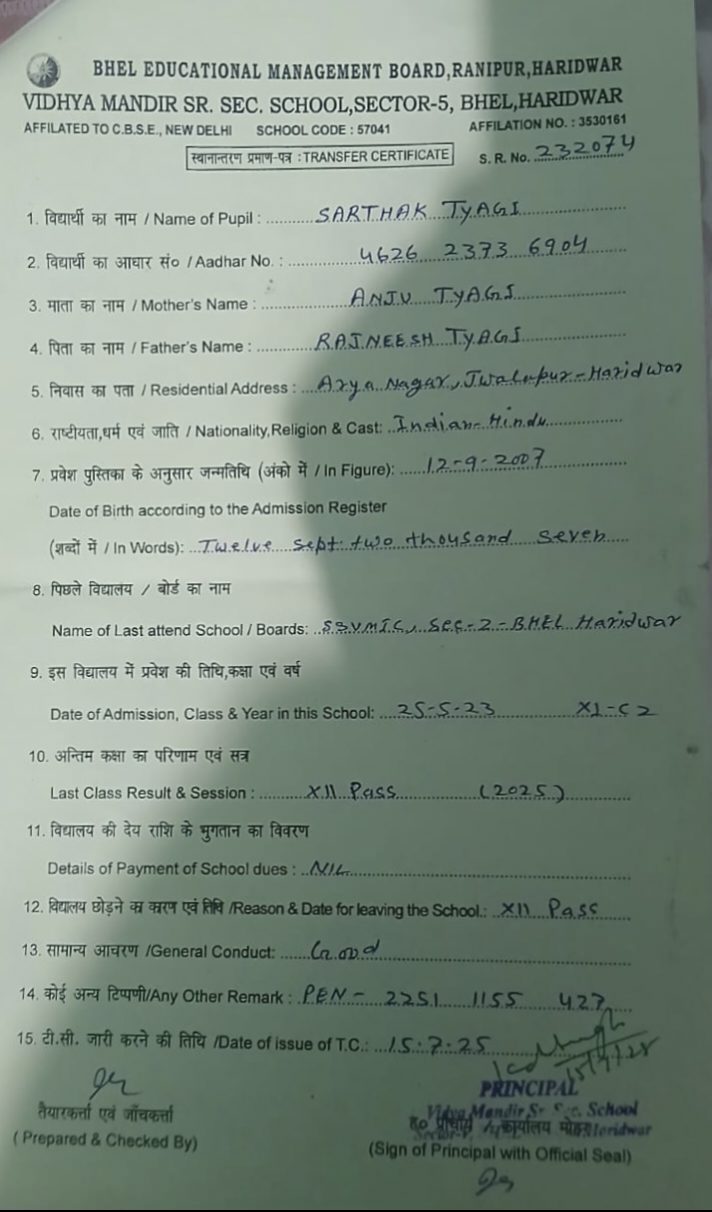 BHEL EDUCATIONAL MANAGEMENT BOARD,RANIPUR,HARIDWAR
VIDHYA MANDIR SR. SEC. SCHOOL,SECTOR-5, BHEL,HARIDWAR
AFFILATED TO C.B.S.E., NEW DELHI SCHOOL CODE : 57041 AFFILATION NO. : 3530161
स्थानान्तरण प्रमाण-पत्र : TRANSFER CERTIFICATE S. R. No. 232074
1. विद्यार्थी का नाम / Name of Pupil : SARTHAK TYAGI
2. विद्यार्थी का आधार सं० / Aadhar No. : 4626 2373 6904
3. माता का नाम / Mother's Name : ANJU TYAGI
4. पिता का नाम / Father's Name : RAJNEESH TYAGI
5. निवास का पता / Residential Address : Arya Nagar, Jwalapur-Haridwar
6. राष्टीयता,धर्म एवं जाति / Nationality,Religion & Cast: Indian-Hindu
7. प्रवेश पुस्तिका के अनुसार जन्मतिथि (अंको में / In Figure): 12-9-2007
Date of Birth according to the Admission Register
(शब्दों में / In Words): Twelve Sept. two thousand seven
8. पिछले विद्यालय / बोर्ड का नाम
Name of Last attend School / Boards: SSVMIC, Sec-2-BHEL Haridwar
9. इस विद्यालय में प्रवेश की तिथि,कक्षा एवं वर्ष
Date of Admission, Class & Year in this School: 25-5-23 XI-C2
10. अन्तिम कक्षा का परिणाम एवं सत्र
Last Class Result & Session : XII Pass (2025)
11. विद्यालय की देय राशि के भुगतान का विवरण
Details of Payment of School dues : NIL
12. विद्यालय छोड़ने का कारण एवं तिथि /Reason & Date for leaving the School.: XII Pass
13. सामान्य आचरण /General Conduct: Good
14. कोई अन्य टिप्पणी/Any Other Remark : PEN - 2251 1155 427
15. टी.सी. जारी करने की तिथि /Date of issue of T.C.: 15-7-25
PRINCIPAL
तैयारकर्त्ता एवं जाँचकर्त्ता Vidya Mandir Sr Sec. School
( Prepared & Checked By) ह० प्रचार्य कार्यालय मोहर Haridwar
(Sign of Principal with Official Seal)